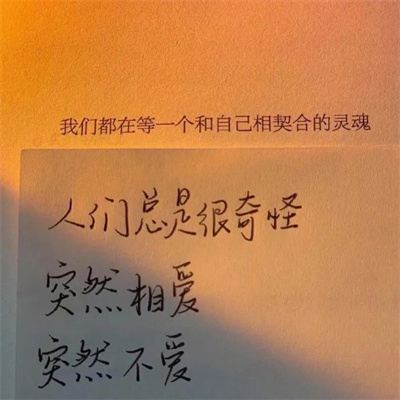 我们都在等一个和自己相契合的灵魂
人们总是很奇怪
突然相爱
突然不爱